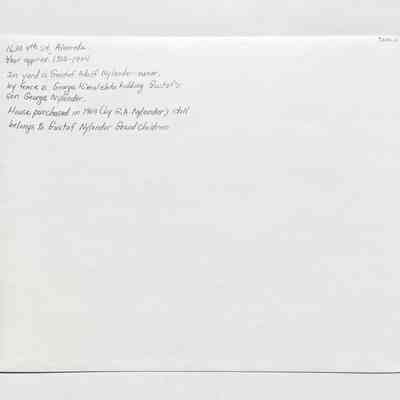 St, Alameda.
Year approx. 1902-1904
In yard is Gustaf Adolf Nylander-owner.
by fence is George holding Gustaf's
son George Nylander.
House purchased in (by G.A. Nylander) still
belongs to Gustaf Nylander Grand Children